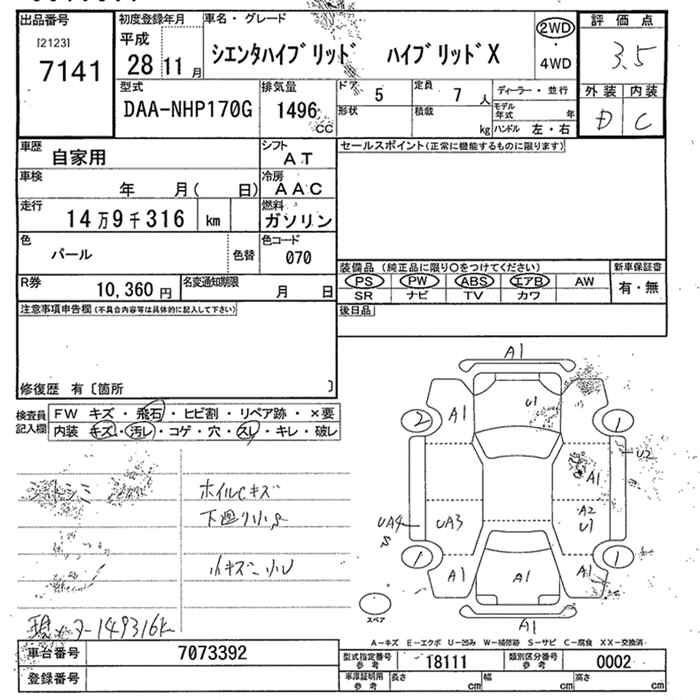 出品番号
[2123]
7141
初度登録年月
平成
28 11 月
車名・グレード
シエンタハイブリッド ハイブリッドX
2WD
・
4WD
評価点
3.5
外装 内装
D C
型式
DAA-NHP170G
排気量
1496 cc
ドア 5
形状
定員 7 人
積載 kg
ディーラー・並行
モデル年式 年
ハンドル 左・右
車歴
自家用
シフト
AT
車検
年 月( 日)
冷房
AAC
走行
14万9千316 km
燃料
ガソリン
色
パール
色替
色コード
070
R券
10,360円
名変通知期限
月 日
セールスポイント(正常に機能するものに限ります)
装備品(純正品に限り○をつけてください)
PS PW ABS エアB AW
SR ナビ TV カワ
新車保証書
有・無
後日品
注意事項申告欄(不具合内容等は具体的に記入して下さい)
修復歴 有〔箇所 〕
検査員記入欄
FW キズ・飛石・ヒビ割・リペア跡・×要
内装 キズ・汚レ・コゲ・穴・スレ・キレ・破レ
シートシミ
ホイルCキズ
下廻り小S
小キズ 小U
現メーター149316k
A1
2 A1 U1 1
U2
A1
UA4 UA3 A2
S U1
1 A1 A1 A1 1
スペア
A1
A-キズ E-エクボ U-凹み W-補修跡 S-サビ C-腐食 XX-交換済
車台番号 7073392
登録番号
型式指定番号 参考 18111
類別区分番号 参考 0002
車庫証明用 参考
長さ cm 幅 cm 高さ cm